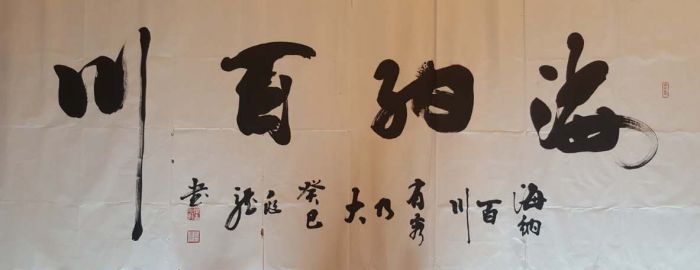 海纳百川
海纳百川有容乃大癸巳龙书